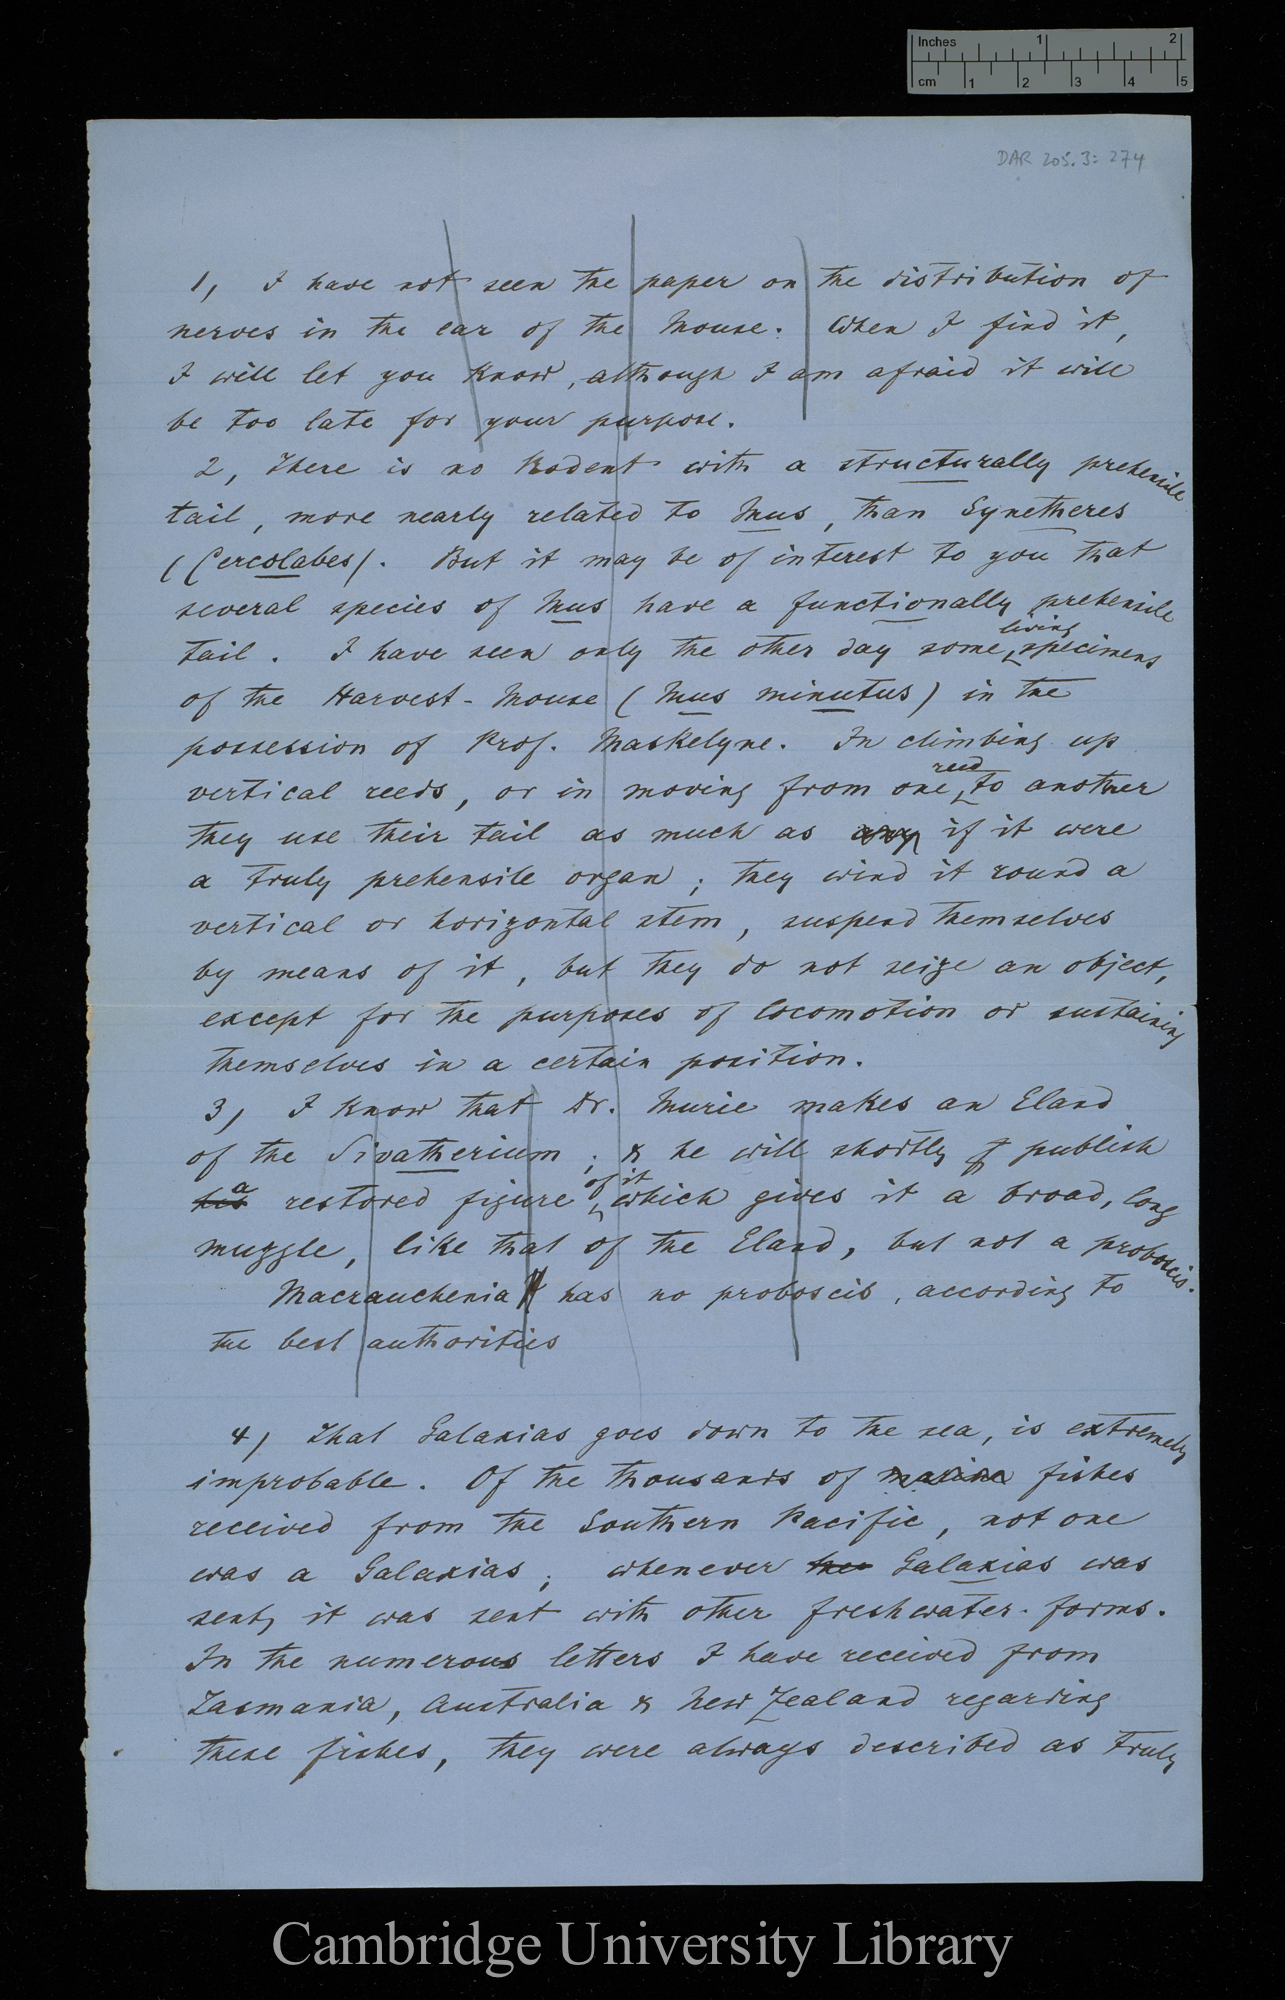 Inches 1 2
cm 1 2 3 4 5
DAR 205.3: 274
1, I have not seen the paper on the distribution of
nerves in the ear of the Mouse. When I find it,
I will let you know, although I am afraid it will
be too late for your purpose.
2, There is no Rodent with a structurally prehensile
tail, more nearly related to Mus, than Synetheres
(Cercolabes). But it may be of interest to you that
several species of Mus have a functionally prehensile
tail. I have seen only the other day some living specimens
of the Harvest-Mouse (Mus minutus) in the
possession of Prof. Maskelyne. In climbing up
vertical reeds, or in moving from one reed to another
they use their tail as much as any if it were
a truly prehensile organ; they wind it round a
vertical or horizontal stem, suspend themselves
by means of it, but they do not seize an object,
except for the purposes of locomotion or sustaining
themselves in a certain position.
3, I know that Dr. Murie makes an Eland
of the Sivatherium; & he will shortly publish
his a restored figure of it which gives it a broad, long
muzzle, like that of the Eland, but not a proboscis.
Macrauchenia has no proboscis, according to
the best authorities
4, That Galaxias goes down to the sea, is extremely
improbable. Of the thousands of marine fishes
received from the Southern Pacific, not one
was a Galaxias; whenever the Galaxias was
sent, it was sent with other freshwater-forms.
In the numerous letters I have received from
Tasmania, Australia & New Zealand regarding
these fishes, they were always described as truly
Cambridge University Library